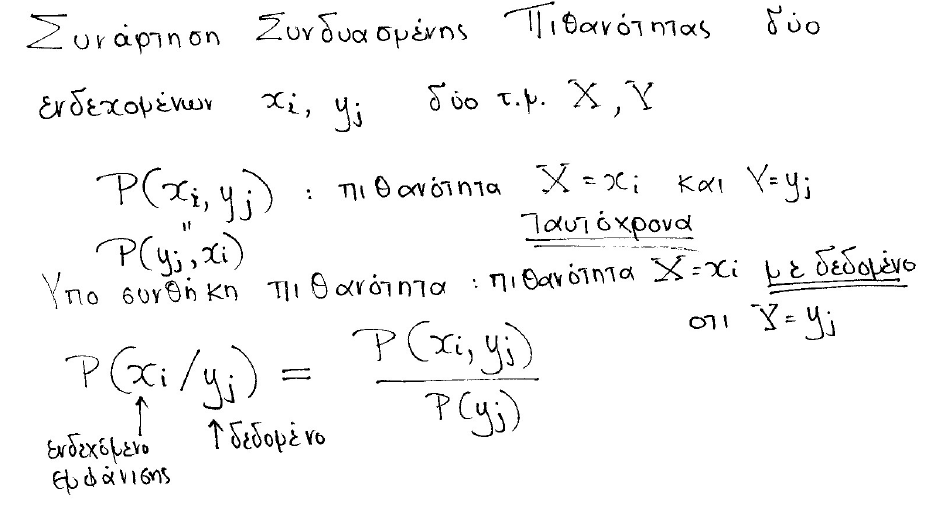 Συνάρτηση Συνδυασμένης Πιθανότητας δύο
ενδεχομένων xi, yj δύο τ.μ. X, Y
P(xi, yj) : πιθανότητα X = xi και Y = yj
"
ταυτόχρονα
P(yj, xi)
Υπο συνθήκη πιθανότητα : πιθανότητα X = xi με δεδομένο
οτι Y = yj
P(xi / yj) = P(xi, yj) / P(yj)
↑ ↑ δεδομένο
ενδεχόμενο
εμφάνισης